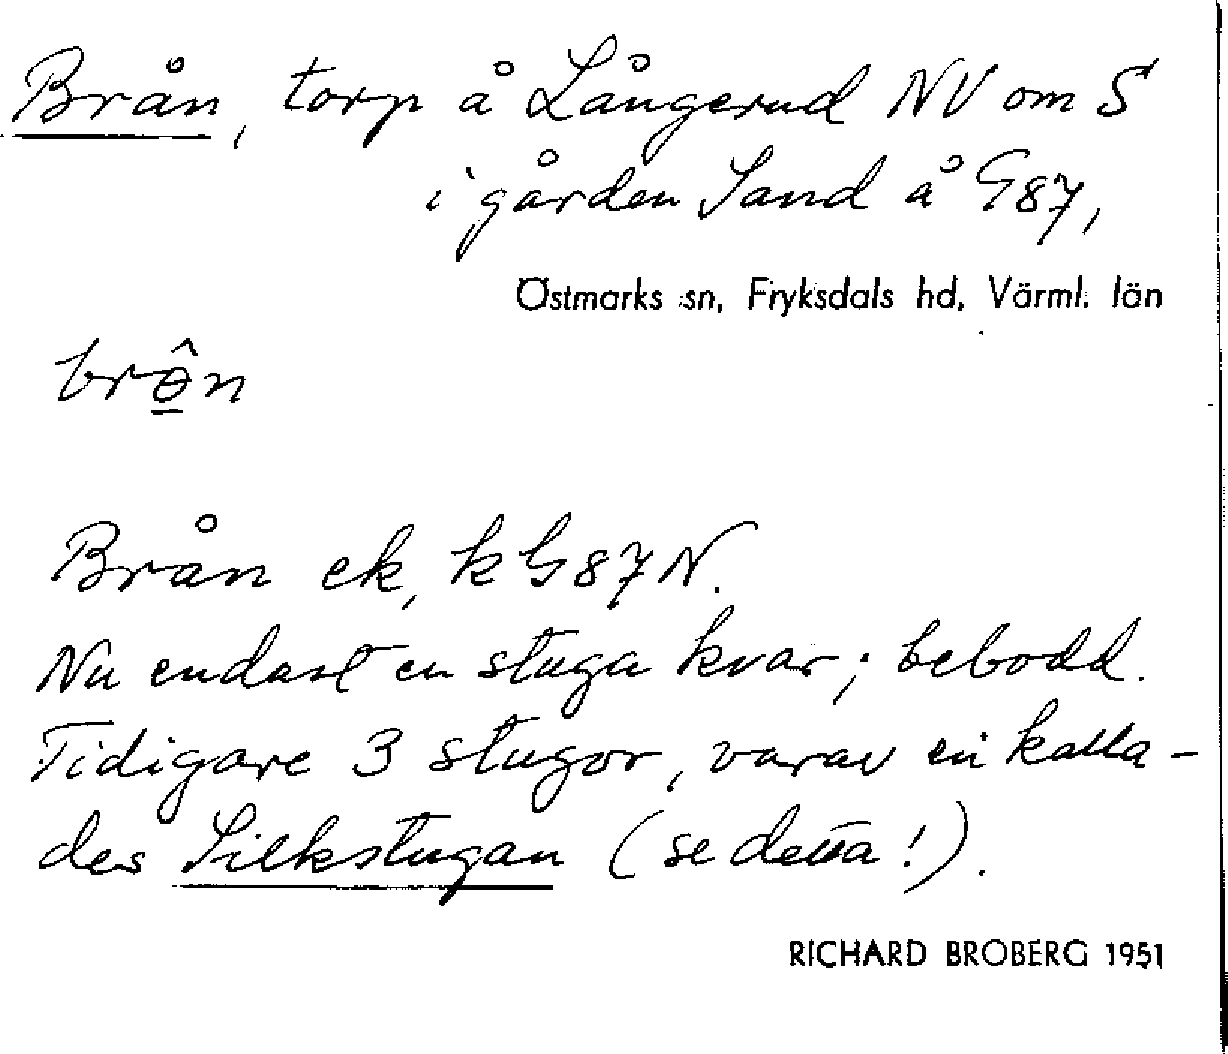 Brån, torp å Långerud NV om S
i gården Sand å G87,
Östmarks sn, Fryksdals hd, Värml. län
brɵ̂n
Brån ek, k G87N.
Nu endast en stuga kvar; bebodd.
Tidigare 3 stugor, varav en kalla-
des Silkstugan (se detta!).
RICHARD BROBERG 1951